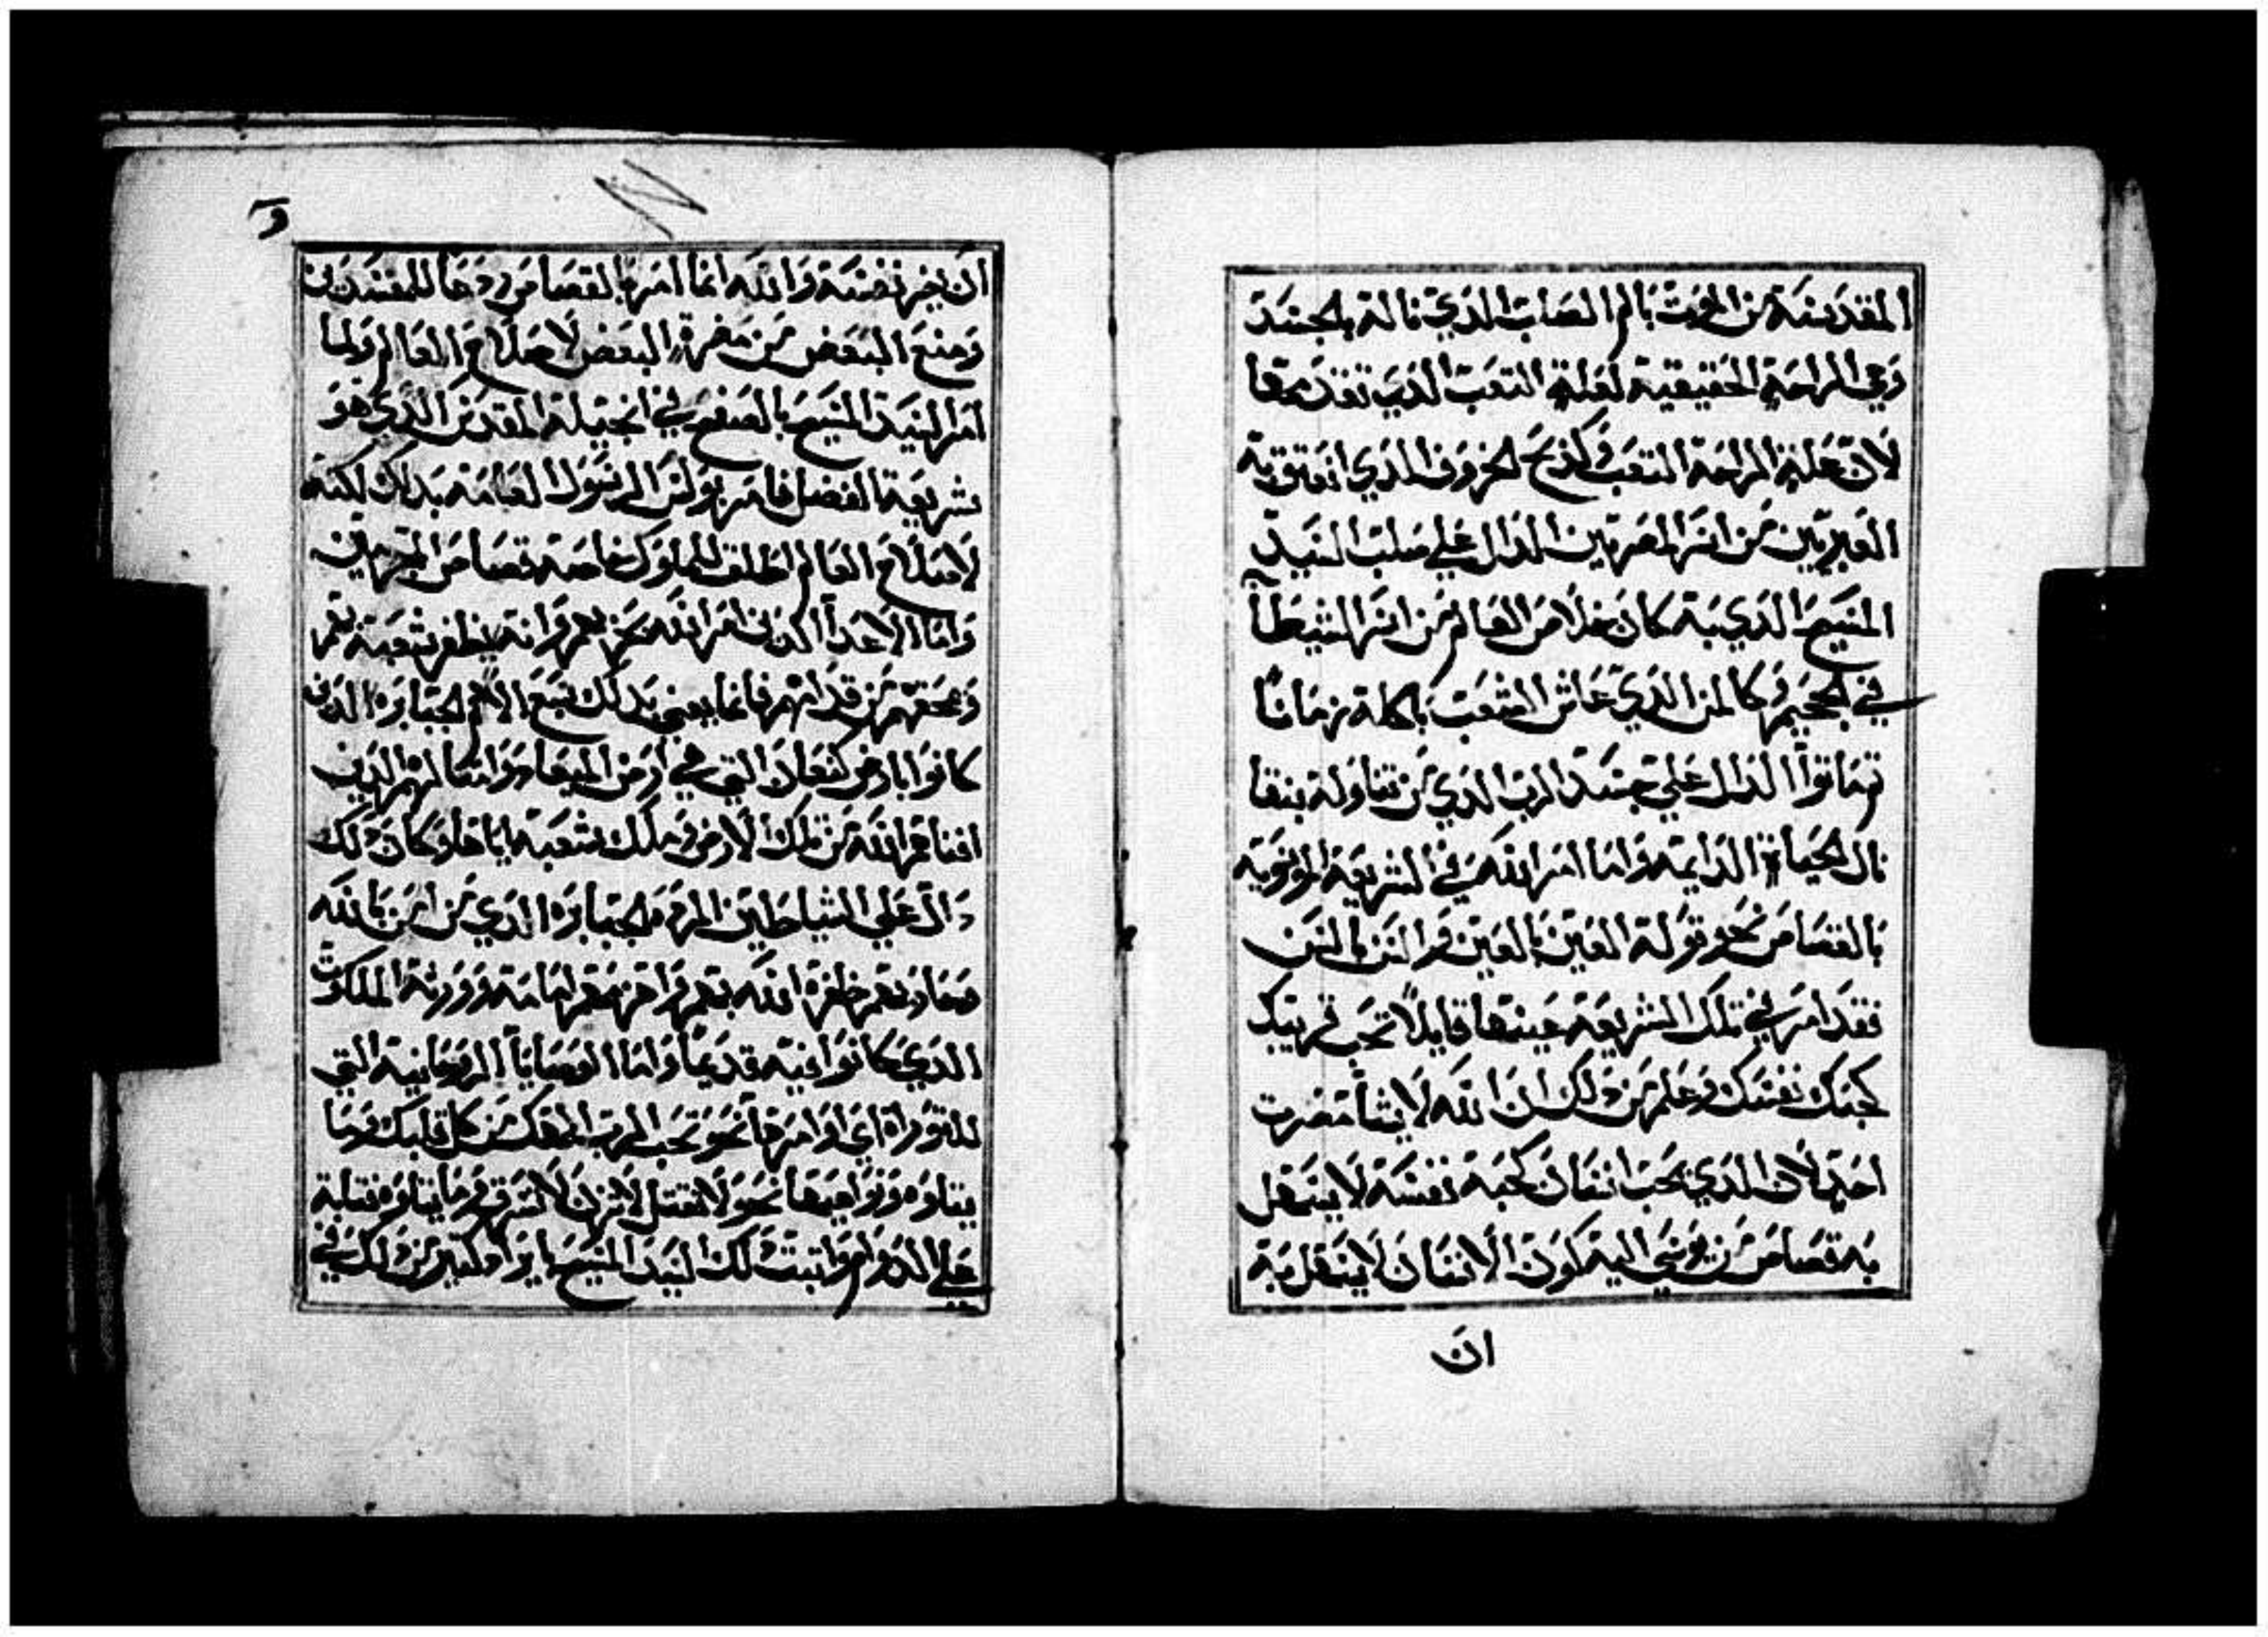 المقدسة من الموت بالم الصلب الذي نالة بالجسد
وهي الراحة الحقيقية لعلة التعب الذي تقدمها
لان علة الراحة التعب وكذبح الخروف الذي انعتق به
العبريين من اسر المصريين الدال علي صلب السيد
المسيح الذي به كان خلاص العالم من اسر الشيطان
في الجحيم وكالمن الذي عاش الشعب باكلة زمانا
ثم ماتوا الدال علي جسد الرب الذي من تناولة بنقا
نال الحياة الدايمه واما امر الله في الشريعة الموسويه
بالقصاص نحو قولة العين بالعين والسن بالسن
فقد امر في تلك الشريعة عينها قايلا تحب قريبك
كحبك نفسك وعلم من ذلك ان الله لا يشا مضرت
احد لان الذي يحب انسان كحبة نفسة لا يفعل
به قصاص من يوسي اليه لكون الانسان لا يفعل به
ان
و
ان يضر نفسة والله انما امر بالقصاص ردعا للمفسدين
ومنع البعض من مضرة البعض لاصلاح العالم ولما
امر السيد المسيح بالصفح في انجيلة المقدس الذي هو
شريعة الفضل فامر بولس الرسول العامة بذلك لكنه
لاصلاح العالم اطلق للملوك خاصة قصاص المجرمين
واما الاعدا الذين امر الله بحربهم وانه يظفر شعبه بهم
ويمحقهم من قدامهم فانما يعني بذلك سبع الامم الجبابره الذين
كانوا بارض كنعان التي هي ارض الميعاد وامثالهم الذين
افناهم الله من تلك الارض وملك شعبه اياها وكان ذلك
دال علي الشياطين المرده الجبابره الذي من امن بالله
وصاياه ظفرة الله بهم وقهرهم امامة وورثة الملكوت
الذي كانوا فيه قديما واما الوصايا الروحانية التي
للتوراه اي اوامرها نحو تحب الرب الهك من كل قلبك وما
يتلوه ونواهيها نحو لا تقتل لا تزن لا تسرق وما يتلوه فثابتة
علي الدوام واثبت ذلك السيد المسيح بل وزاد كثير من ذلك في